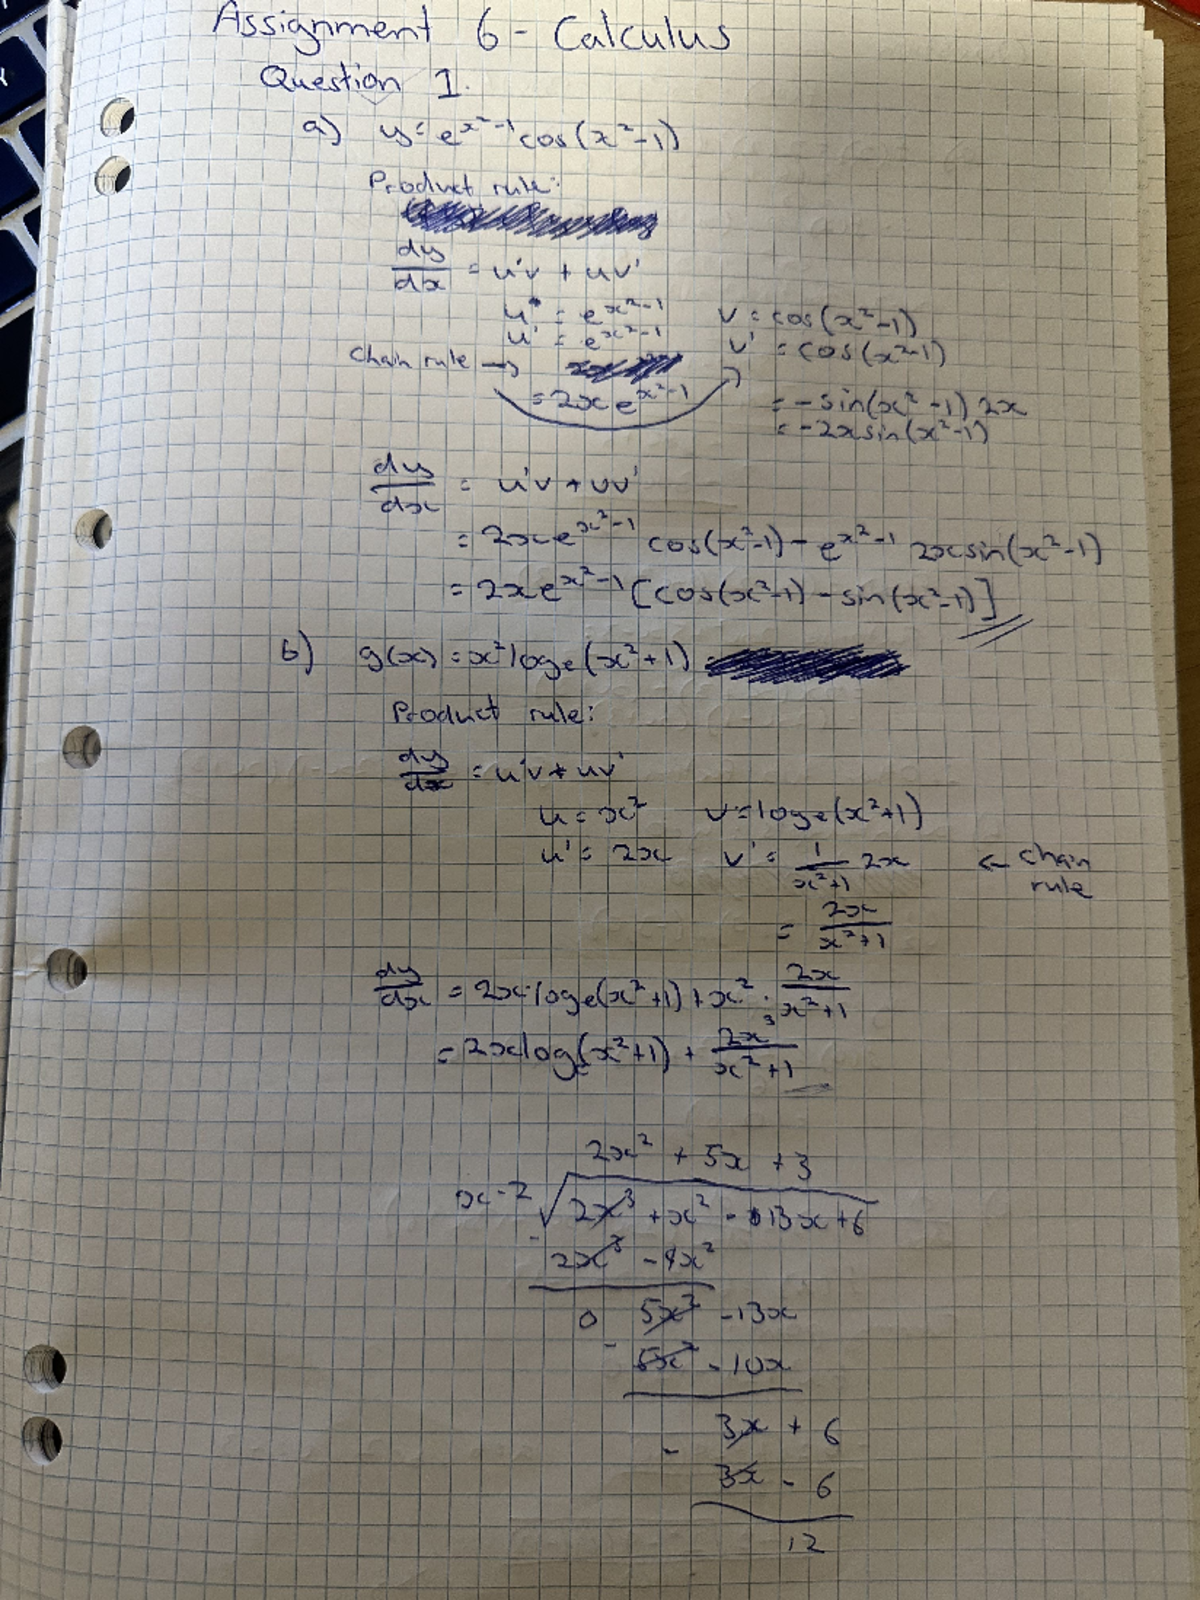 Assignment 6 - Calculus
Question 1.
a) y = e^{x²-1} cos(x²-1)
Product rule:
dy/dx = u'v + uv'
u = e^{x²-1}    v = cos(x²-1)
u' = e^{x²-1}    v' = cos(x²-1)
Chain rule →
= 2x e^{x²-1}    = -sin(x²-1) 2x
= -2x sin(x²-1)
dy/dx = u'v + uv'
= 2x e^{x²-1} cos(x²-1) - e^{x²-1} 2x sin(x²-1)
= 2x e^{x²-1} [cos(x²-1) - sin(x²-1)]
b) g(x) = x² logₑ(x²+1)
Product rule:
dy/dx = u'v + uv'
u = x²    v = logₑ(x²+1)
u' = 2x    v' = 1/(x²+1) 2x    ← chain rule
= 2x/(x²+1)
dy/dx = 2x·logₑ(x²+1) + x² · 2x/(x²+1)
= 2x logₑ(x²+1) + 2x³/(x²+1)
2x² + 5x + 3
x-2 √ 2x³ + x² - 13x + 6
- 2x³ - 4x²
0 5x² - 13x
- 5x² - 10x
3x + 6
- 3x - 6
12